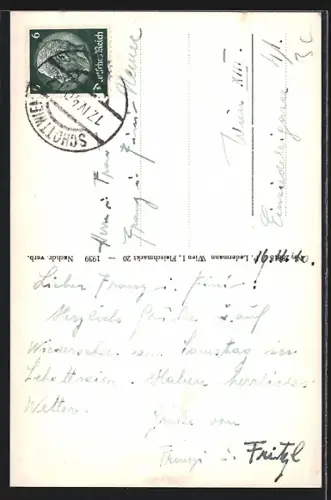 6
Deutsches Reich
SCHOTTWIEN
12.IV.4
Herrn u. Frau
Franz u. Fini
Wien XIII.
4/1.
3c
P. Ledermann Wien I., Fleischmarkt 20 — 1939 Nachdr. verb.
Lieber Franz u. Fini!
Herzliche Grüße u. auf
Wiedersehen am Samstag in
Haben herrliches
Wetter.
Grüße von
Franzi u. Fritzl